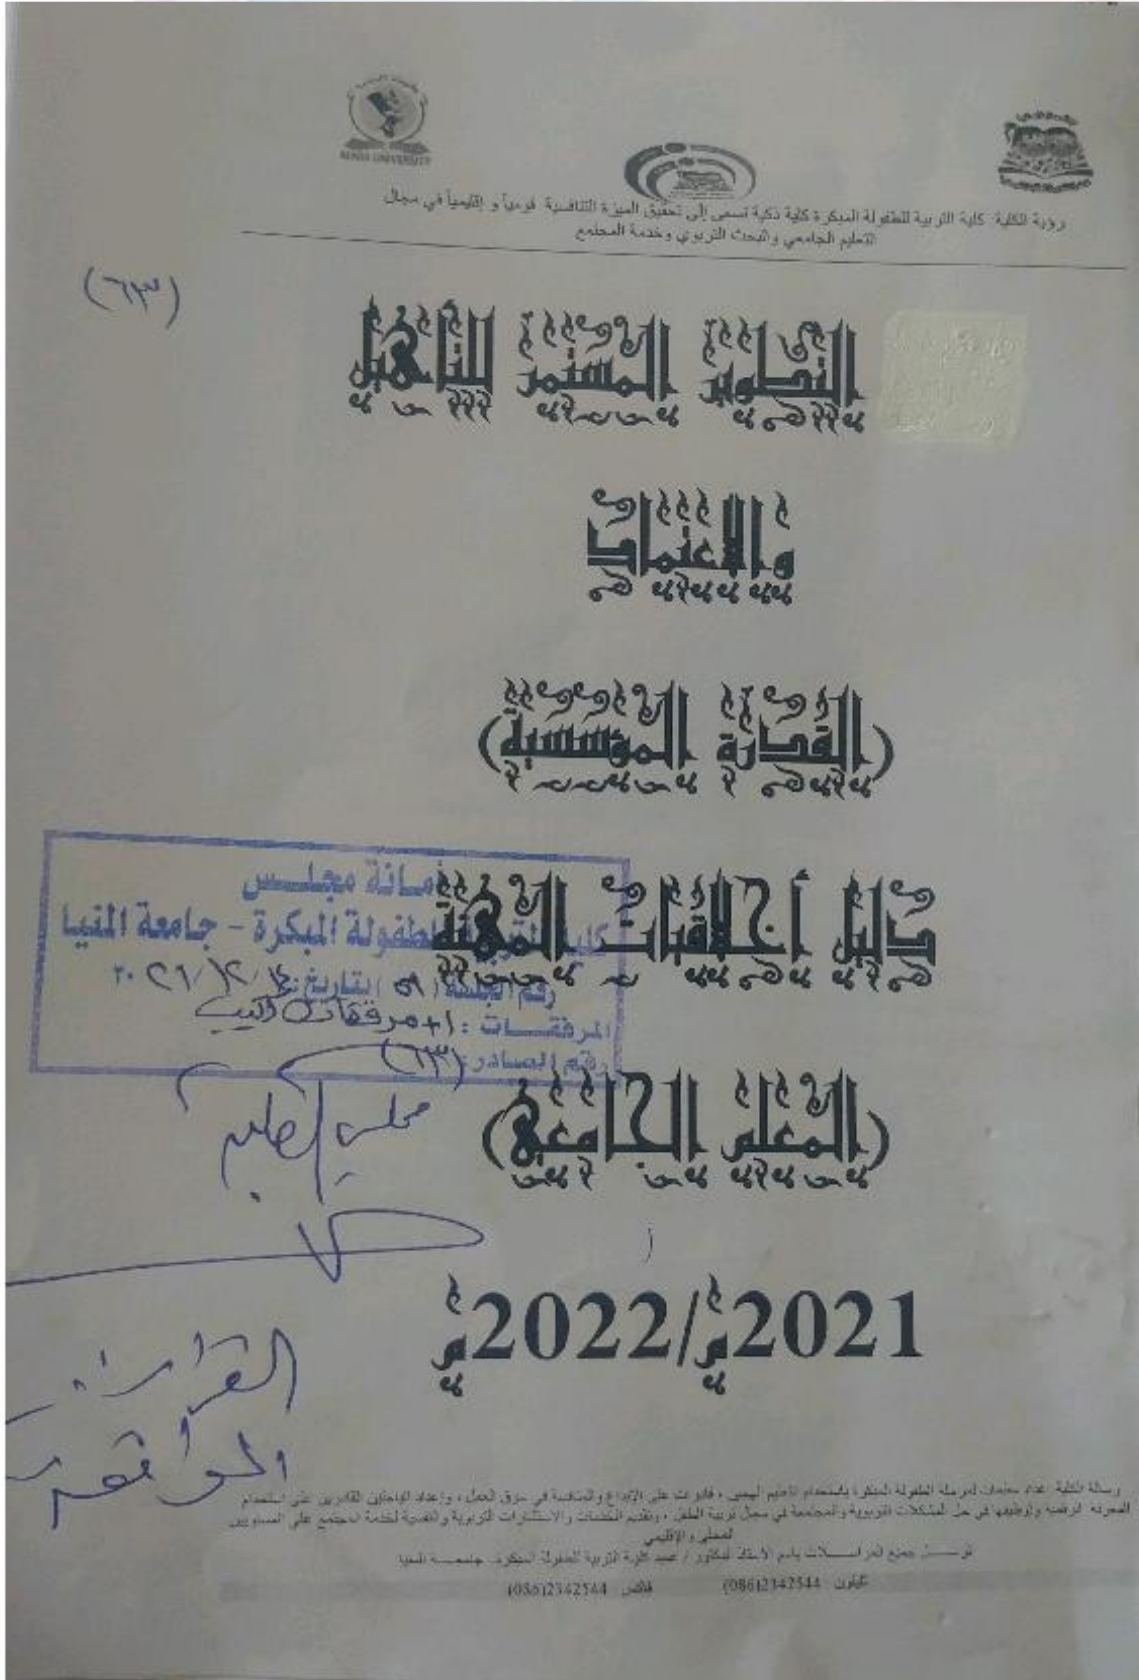 MINIA UNIVERSITY
رؤية الكلية: كلية التربية للطفولة المبكرة كلية ذكية تسعى إلى تحقيق الميزة التنافسية قومياً و إقليمياً في مجال
التعليم الجامعي والبحث التربوي وخدمة المجتمع
(٦٣)
التطوير المستمر للتأهيل
والاعتماد
(القدرة المؤسسية)
دليل أخلاقيات المهنة
أمانة مجلس
كلية التربية للطفولة المبكرة - جامعة المنيا
رقم الجلسة ( التاريخ: / ١٢ / ٢٠٢١
المرفقات: ١+مرفقات
رقم الصادر: (٦٣)
(المعلم الجامعي)
2021م/2022م
القرار:
الموافقة
رسالة الكلية: إعداد معلمات لمرحلة الطفولة المبكرة باستخدام التعليم الهجين، قادرات على الإبداع والمنافسة في سوق العمل، وإعداد الباحثين القادرين على استخدام
المعرفة الرقمية وتوظيفها في حل المشكلات التربوية والمجتمعة في مجال تربية الطفل، وتقديم الخدمات والاستشارات التربوية والنفسية لخدمة المجتمع على المستويين
المحلي و الإقليمي
ترسل جميع المراسلات باسم الأستاذ الدكتور / عميد كلية التربية للطفولة المبكرة. جامعة المنيا
تليفون : 2342544(086) فاكس : 2342544(086)